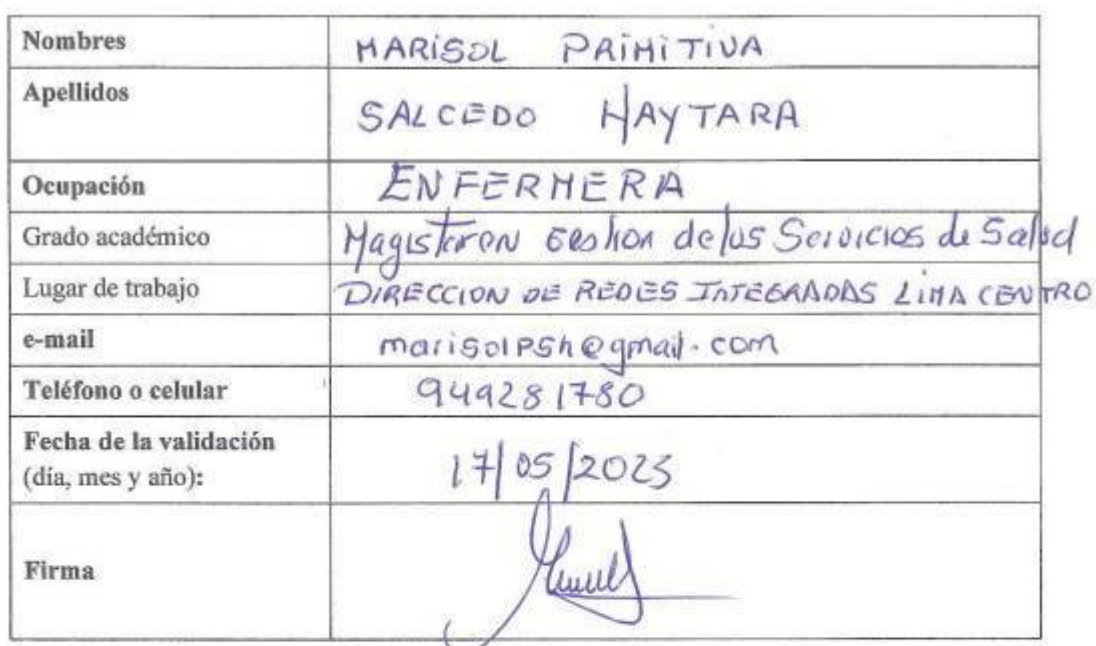 Nombres MARISOL PRIMITIVA
Apellidos SALCEDO HAYTARA
Ocupación ENFERMERA
Grado académico Magister en Gestion de los Servicios de Salud
Lugar de trabajo DIRECCION DE REDES INTEGRADAS LIMA CENTRO
e-mail marisolpsh@gmail.com
Teléfono o celular 949281780
Fecha de la validación
(día, mes y año): 17/05/2023
Firma